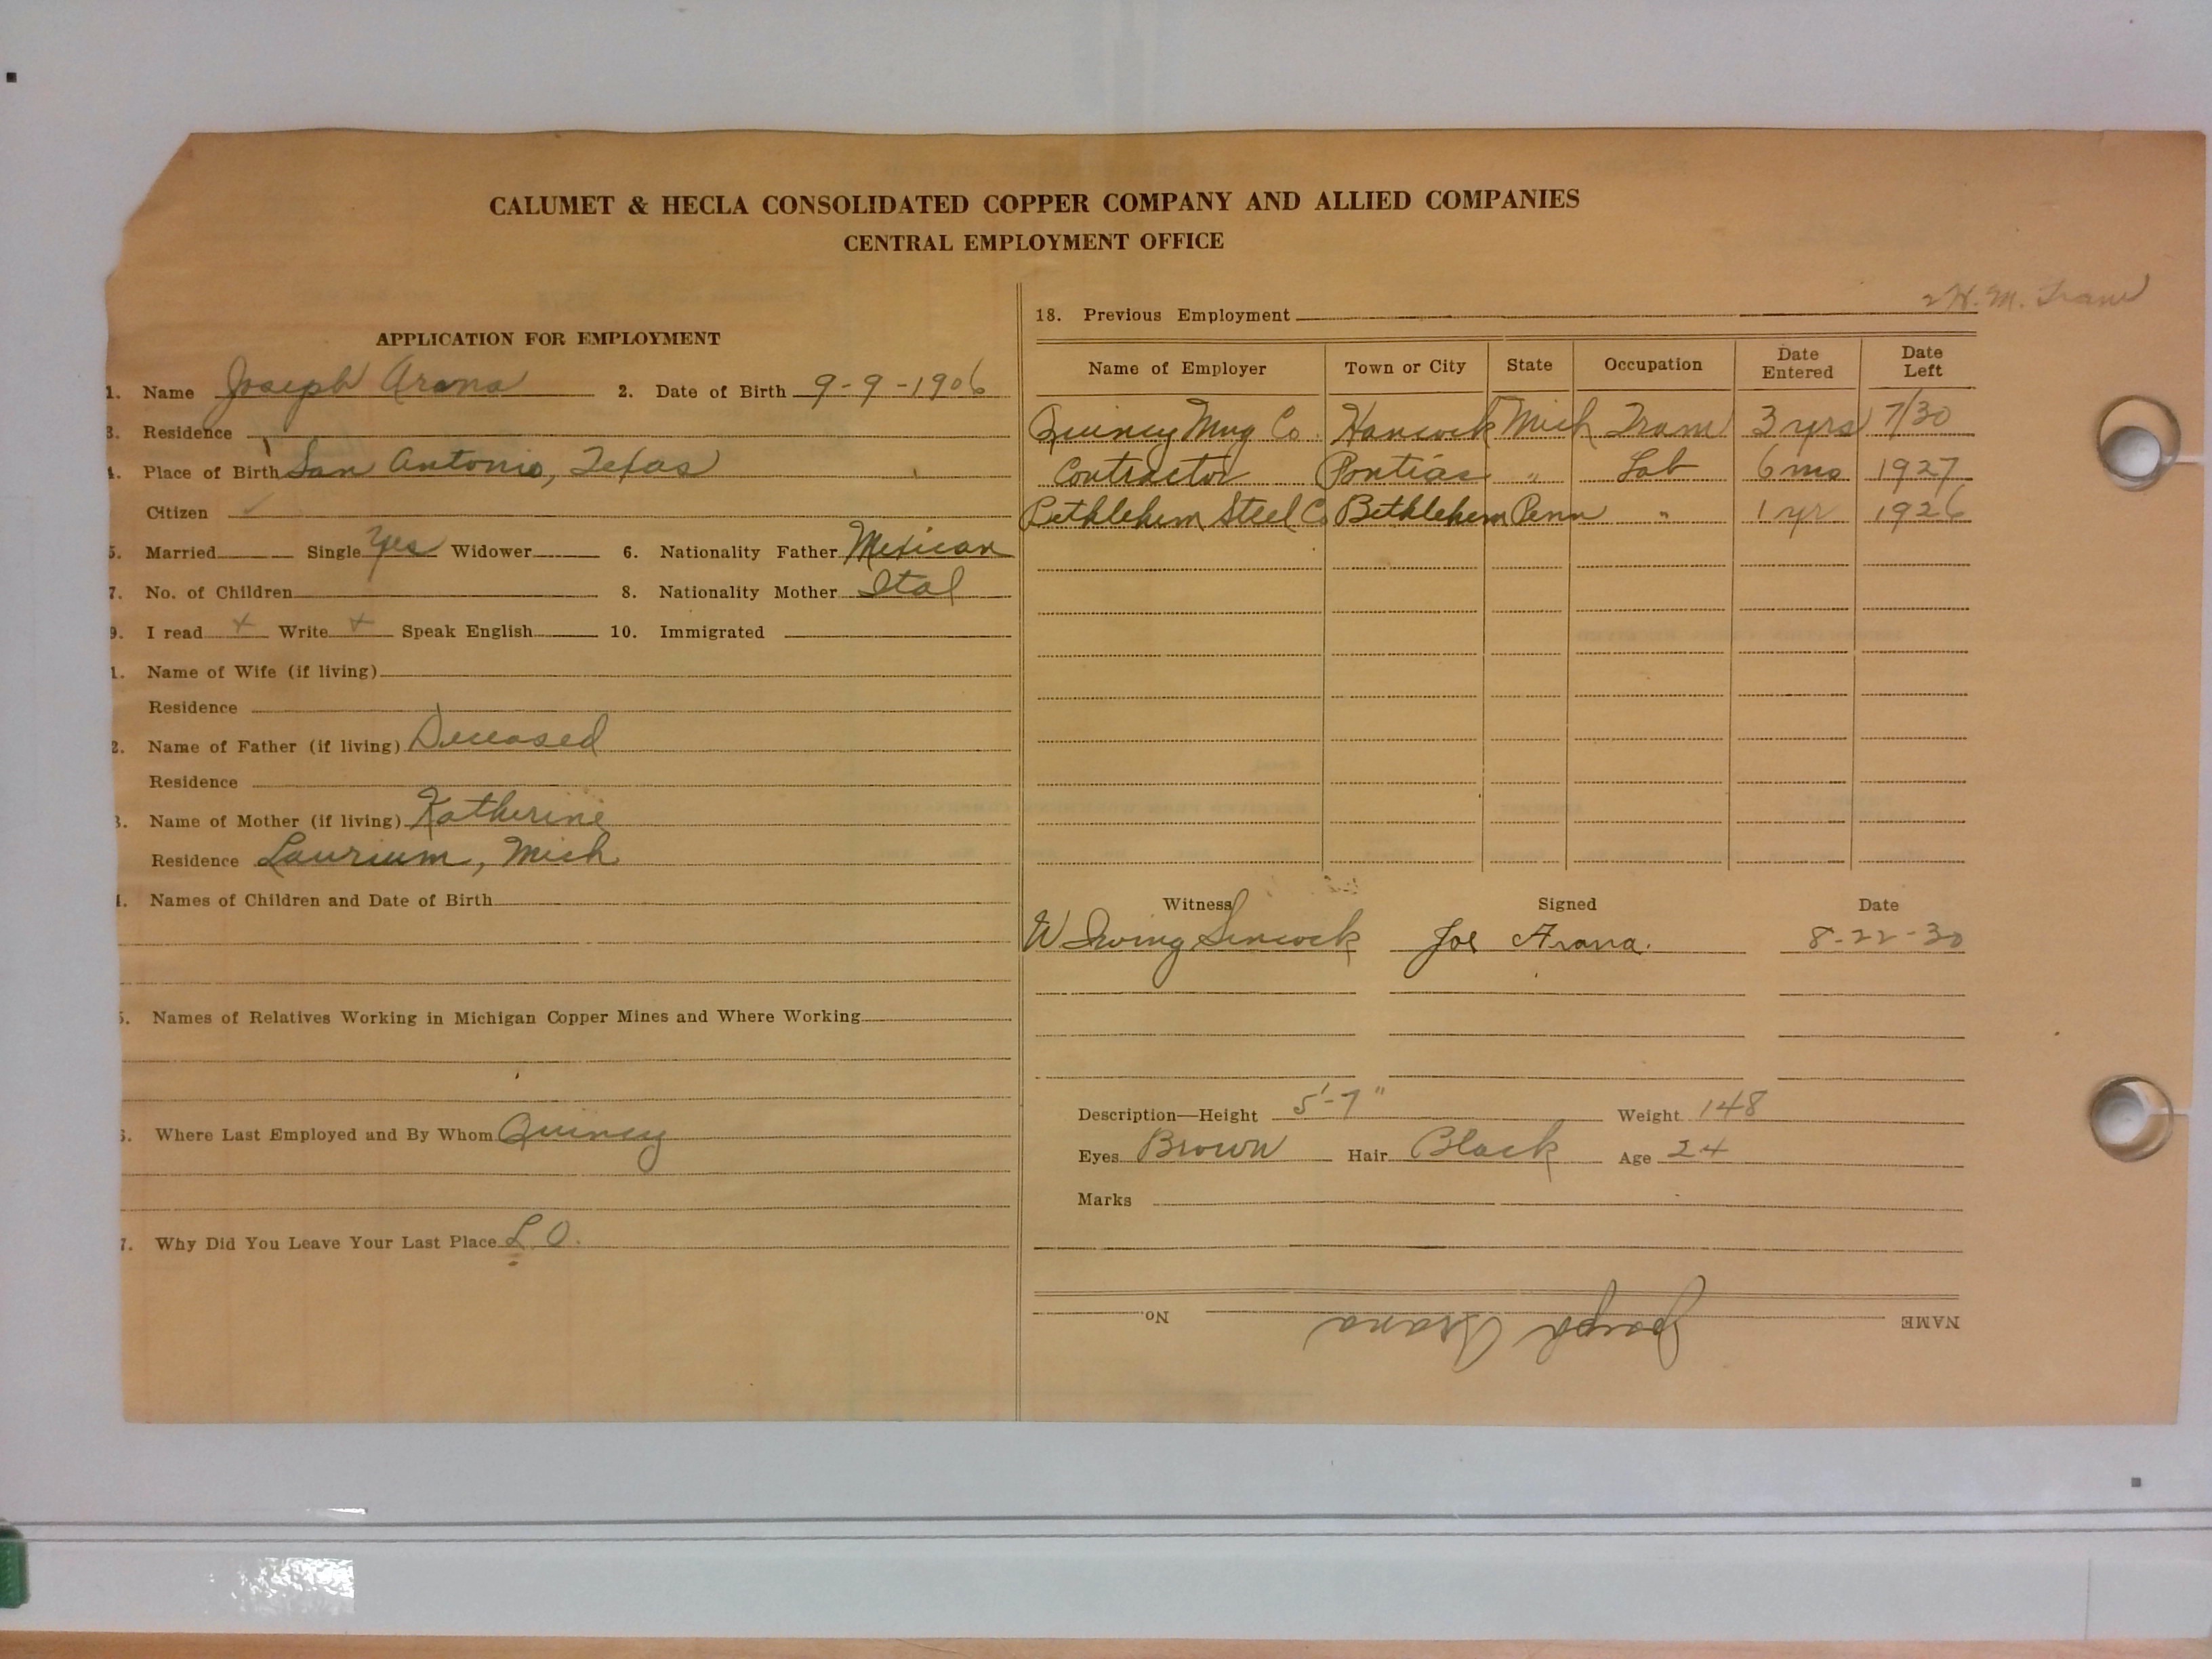 CALUMET & HECLA CONSOLIDATED COPPER COMPANY AND ALLIED COMPANIES
CENTRAL EMPLOYMENT OFFICE
APPLICATION FOR EMPLOYMENT
1. Name Joseph Arana 2. Date of Birth 9-9-1906
3. Residence
4. Place of Birth San Antonio, Texas
Citizen ✓
5. Married Single Yes Widower 6. Nationality Father Mexican
7. No. of Children 8. Nationality Mother Ital
9. I read + Write + Speak English 10. Immigrated
1. Name of Wife (if living)
Residence
2. Name of Father (if living) Deceased
Residence
3. Name of Mother (if living) Katherine
Residence Laurium, Mich
4. Names of Children and Date of Birth
5. Names of Relatives Working in Michigan Copper Mines and Where Working
6. Where Last Employed and By Whom Quincy
7. Why Did You Leave Your Last Place L.O.
18. Previous Employment
Name of Employer Town or City State Occupation Date Entered Date Left
Quincy Mng Co. Hancock Mich Tram 3 yrs 7/30
Contractor Pontiac " Lab 6 mo 1927
Bethlehem Steel Co Bethlehem Penn " 1 yr 1926
Witness Signed Date
W Irving Sincock Joe Arana. 8-22-30
Description—Height 5'-7" Weight 148
Eyes Brown Hair Black Age 24
Marks
NAME Joseph Arana No.